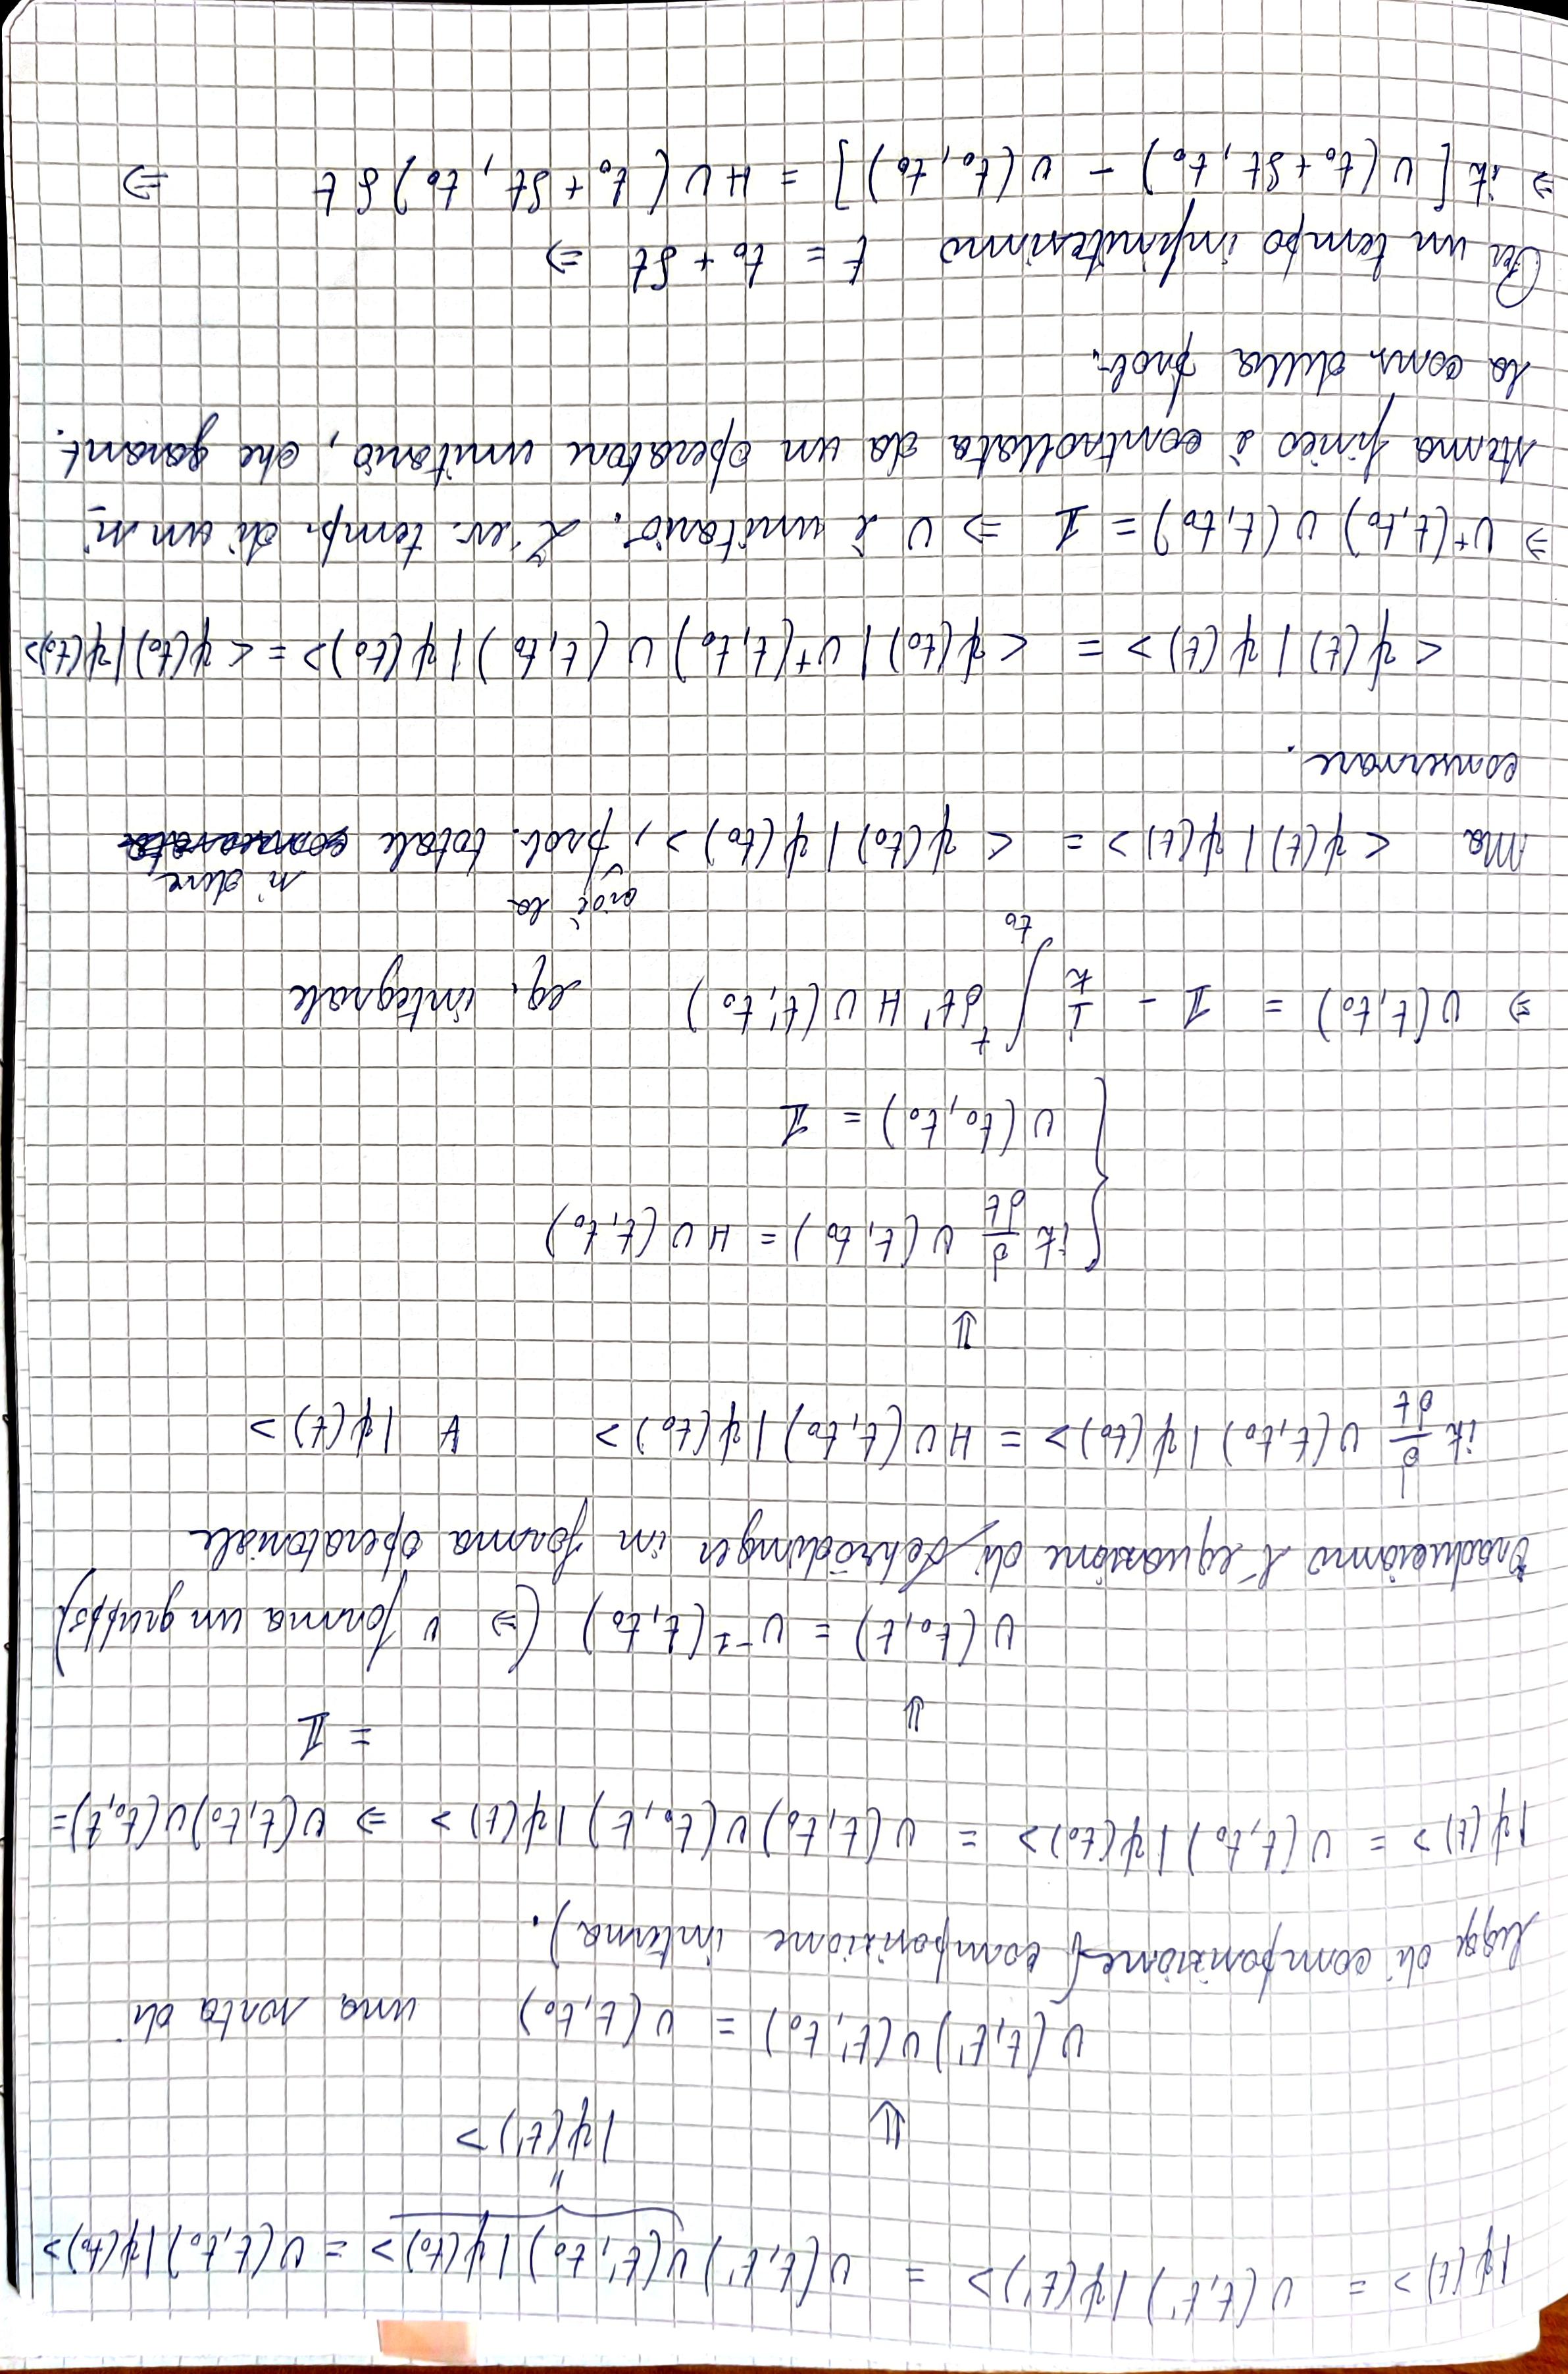 |ψ(t)> = U(t,t')|ψ(t')> = U(t,t')U(t',t₀)|ψ(t₀)> = U(t,t₀)|ψ(t₀)>
"
|ψ(t')>
⇓
U(t,t')U(t',t₀) = U(t,t₀) una sorta di
legge di composizione (composizione interna).
|ψ(t)> = U(t,t₀)|ψ(t₀)> = U(t,t₀)U(t₀,t)|ψ(t)> ⇒ U(t,t₀)U(t₀,t) =
= 𝟙
⇓
U(t₀,t) = U⁻¹(t,t₀) (⇒ U forma un gruppo)
Traduciamo l'equazione di Schrödinger in forma operatoriale
iħ d/dt U(t,t₀)|ψ(t₀)> = HU(t,t₀)|ψ(t₀)> ∀ |ψ(t)>
⇓
{ iħ d/dt U(t,t₀) = HU(t,t₀)
U(t₀,t₀) = 𝟙
⇒ U(t,t₀) = 𝟙 - i/ħ ∫ₜ₀ᵗ dt' HU(t',t₀) eq. integrale
Ma <ψ(t)|ψ(t)> = <ψ(t₀)|ψ(t₀)>, cioè la prob. totale si deve
conservare.
<ψ(t)|ψ(t)> = <ψ(t₀)|U⁺(t,t₀)U(t,t₀)|ψ(t₀)> = <ψ(t₀)|ψ(t₀)>
⇒ U⁺(t,t₀)U(t,t₀) = 𝟙 ⇒ U è unitario. L'ev. temp. di un si-
stema fisico è controllata da un operatore unitario, che garant.
la cons. della prob.
Per un tempo infinitesimo t = t₀ + δt ⇒
⇒ iħ[U(t₀+δt,t₀) - U(t₀,t₀)] = HU(t₀+δt,t₀)δt ⇒